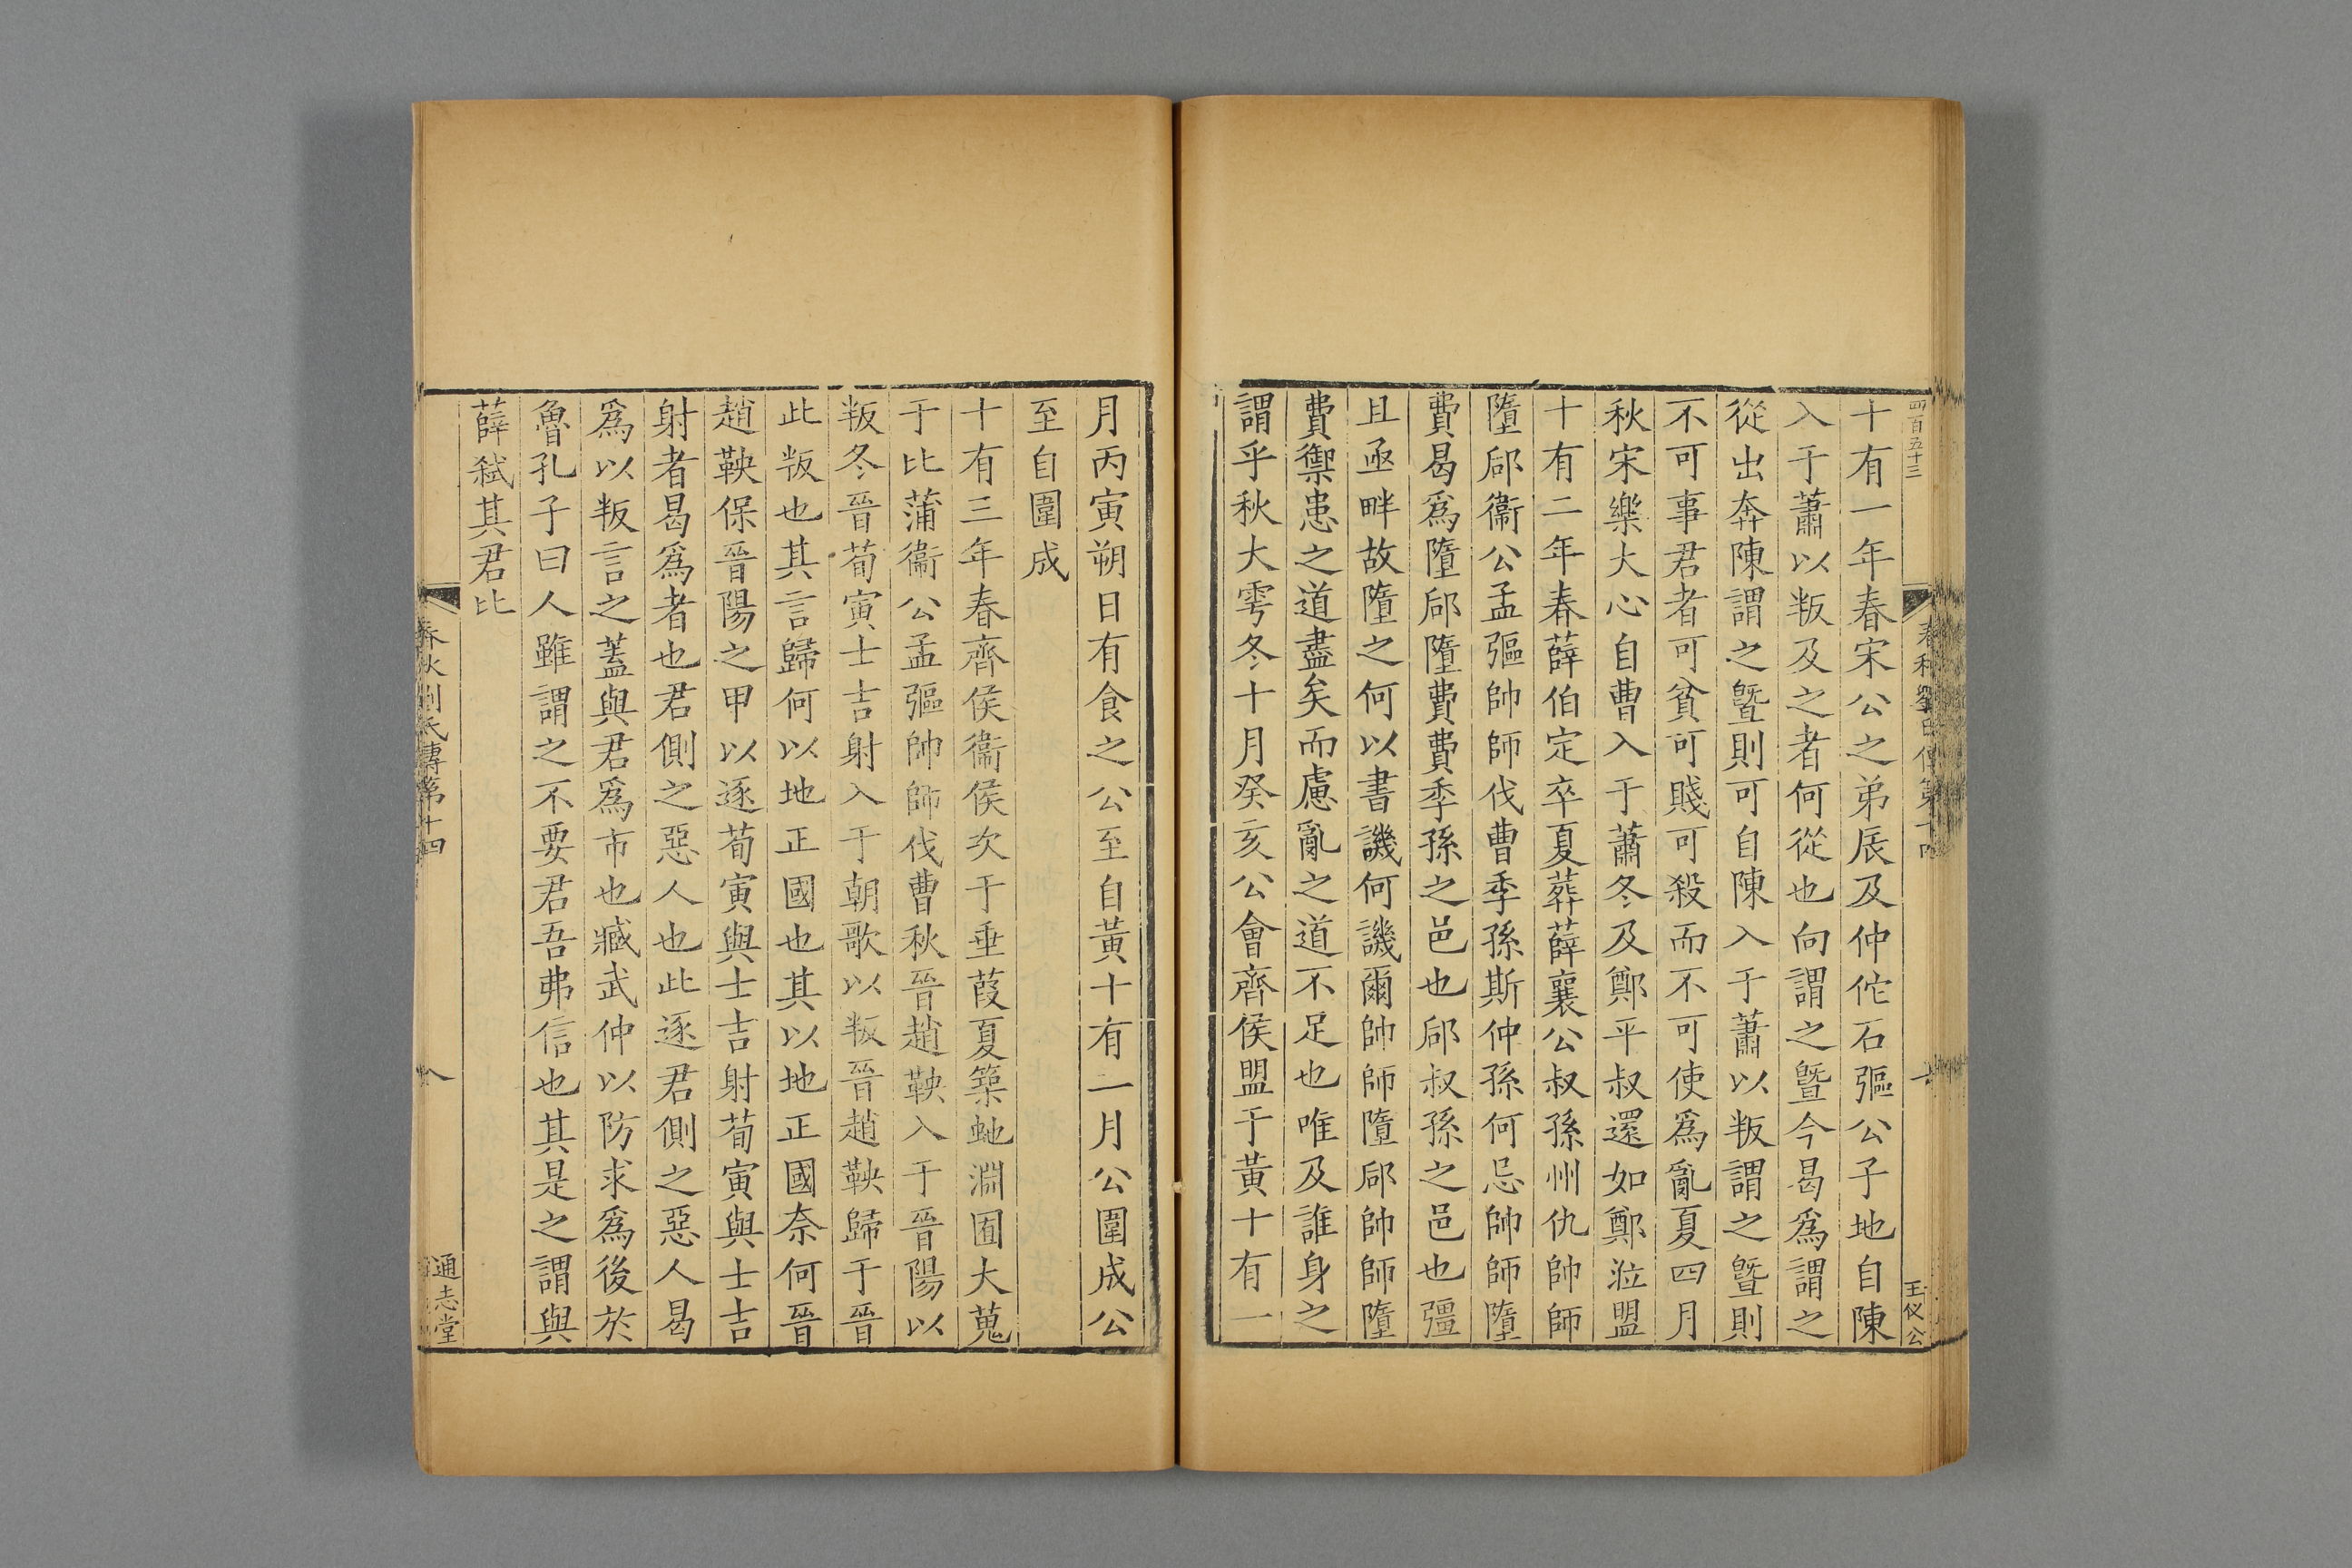 四百五十三
春秋劉氏傳第十四
王役公
十有一年春宋公之弟辰及仲佗石彄公子地自陳
入于蕭以叛及之者何從也向謂之曁今曷爲謂之
從出奔陳謂之曁則可自陳入于蕭以叛謂之曁則
不可事君者可貧可賤可殺而不可使爲亂夏四月
秋宋樂大心自曹入于蕭冬及鄭平叔還如鄭涖盟
十有二年春薛伯定卒夏葬薛襄公叔孫州仇帥師
墮郈衞公孟彄帥師伐曹季孫斯仲孫何忌帥師墮
費曷爲墮郈墮費費季孫之邑也郈叔孫之邑也彊
且亟畔故墮之何以書譏何譏爾帥師墮郈帥師墮
費禦患之道盡矣而慮亂之道不足也唯及誰身之
謂乎秋大雩冬十月癸亥公會齊侯盟于黃十有一
月丙寅朔日有食之公至自黃十有二月公圍成公
至自圍成
十有三年春齊侯衞侯次于垂葭夏築虵淵囿大蒐
于比蒲衞公孟彄帥師伐曹秋晉趙鞅入于晉陽以
叛冬晉荀寅士吉射入于朝歌以叛晉趙鞅歸于晉
此叛也其言歸何以地正國也其以地正國奈何晉
趙鞅保晉陽之甲以逐荀寅與士吉射荀寅與士吉
射者曷爲者也君側之惡人也此逐君側之惡人曷
爲以叛言之蓋與君爲市也臧武仲以防求爲後於
魯孔子曰人雖謂之不要君吾弗信也其是之謂與
薛弑其君比
春秋劉氏傳第十四
八
通志堂